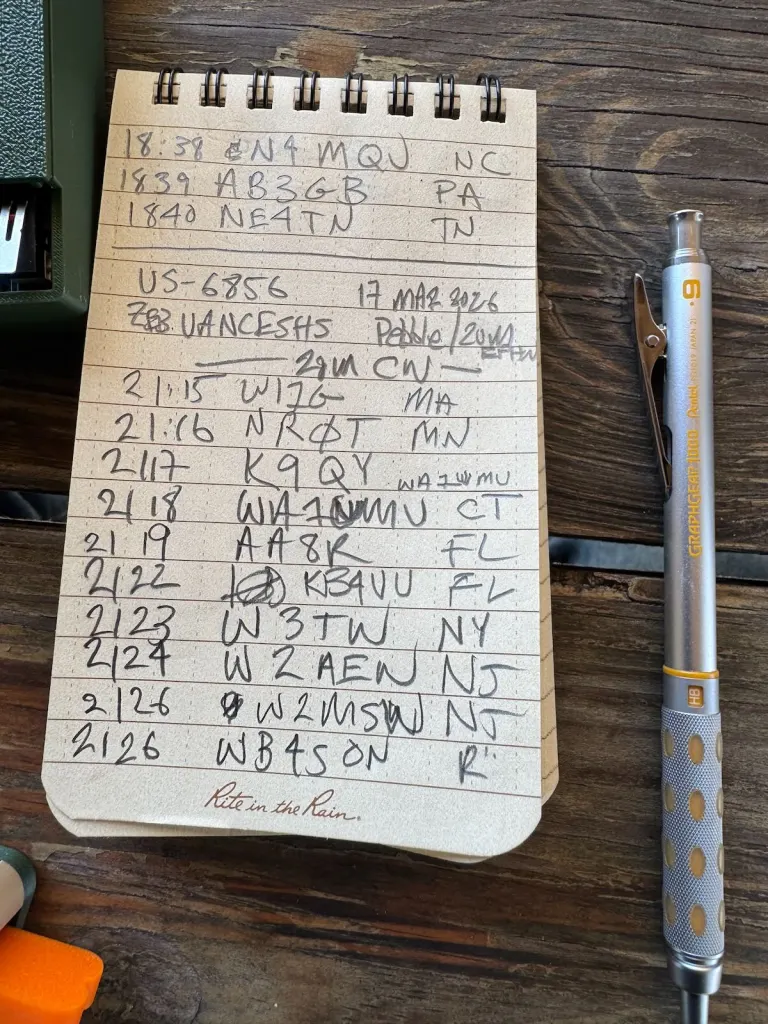 18:38 N4MQJ NC
1839 AB3GB PA
1840 NE4TN TN
US-6856 17 MAR 2026
VANCESHS Pebble/20M
EFHW
20M CW
21:15 W1JG MA
21:16 NRØT MN
2117 K9QY WA1WMU
2118 WA1WMU CT
2119 AA8R FL
2122 KB4VU FL
2123 W3TW NY
2124 W2AEW NJ
2126 W2MSW NJ
2126 WB4SON
Rite in the Rain.
.9
GRAPHGEAR 1000 Pentel JAPAN
HB